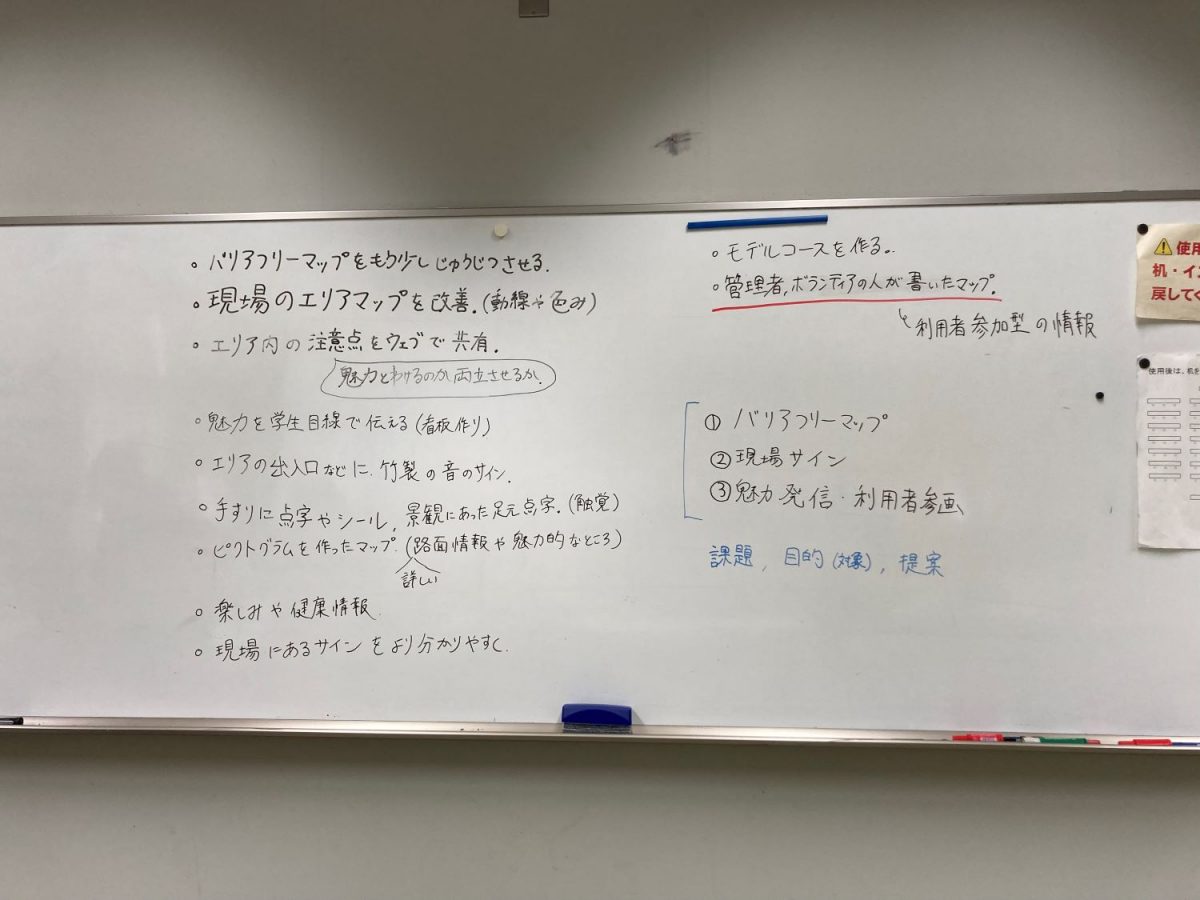 ◦ バリアフリーマップをもう少しじゅうじつさせる.
◦ 現場のエリアマップを改善.(動線や色み)
◦ エリア内の注意点をウェブで共有.
魅力とわけるのか両立させるか.
◦ 魅力を学生目線で伝える(看板作り)
◦ エリアの出入口などに、竹製の音のサイン.
◦ 手すりに点字やシール, 景観にあった足元点字.(触覚)
◦ ピクトグラムを作ったマップ.(路面情報や魅力的なところ)
詳しい
◦ 楽しみや健康情報
◦ 現場にあるサインをより分かりやすく.
◦ モデルコースを作る..
◦ 管理者,ボランティアの人が書いたマップ.
利用者参加型の情報
① バリアフリーマップ
② 現場サイン
③ 魅力発信・利用者参画
課題, 目的(対象), 提案
⚠ 使用
机・イ
戻してく
使用後は、机を